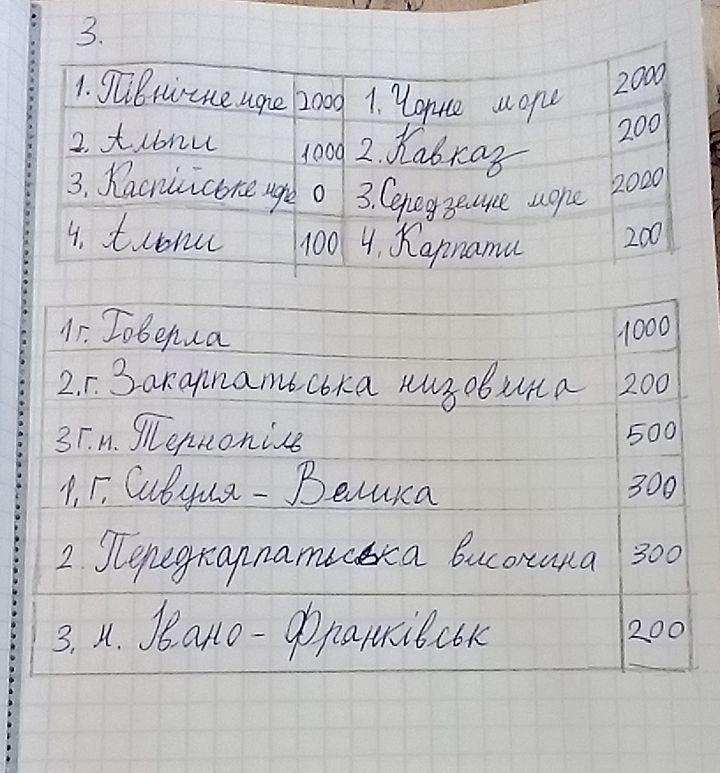 3.
1. Північне море 2000 1. Чорне море 2000
2. Альпи 1000 2. Кавказ 200
3. Каспійське море 0 3. Середземне море 2000
4. Альпи 100 4. Карпати 200
1 г. Говерла 1000
2. г. Закарпатьська низовина 200
3 г. м. Тернопіль 500
1, г. Сивуля - Велика 300
2. Передкарпатьська височина 300
3. м. Івано - Франківськ 200